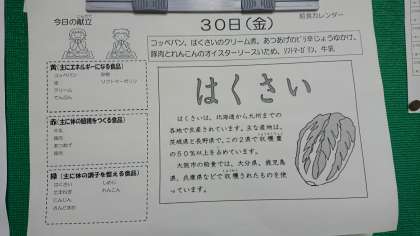 今日の献立
30日(金)
給食カレンダー
コッペパン、はくさいのクリーム煮、あつあげのピリ辛じょうゆかけ、
豚肉とれんこんのオイスターソースいため、ソフトマーガリン、牛乳
黄(主にエネルギーになる食品)
コッペパン 砂糖
油 ソフトマーガリン
クリーム
でんぷん
赤(主に体の組織をつくる食品)
牛乳
鶏肉
あつあげ
豚肉
緑(主に体の調子を整える食品)
はくさい しめじ
たまねぎ れんこん
にんじん
さんどまめ
はくさい
はくさいは、北海道から九州までの
各地で生産されています。主な産地は、
茨城県と長野県で、この2県で収穫量
の50%以上を占めています。
大阪市の給食では、大分県、鹿児島
県、兵庫県などで収穫されたものを使
っています。